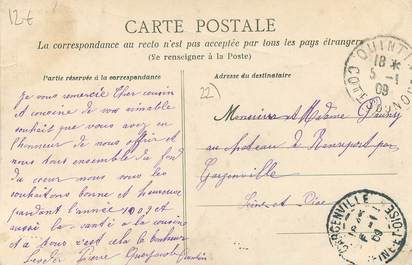 12€
CARTE POSTALE
La correspondance au recto n'est pas acceptée par tous les pays étrangers
(Se renseigner à la Poste)
Partie réservée à la correspondance
Adresse du destinataire
22)
QUINTIN
18 *
5 - 1
09
CÔTES DU NORD
Je vous remercie Cher cousin
et cousine de vos aimable
souhait que vous avez eu
l'honneur de nous offrir et
nous tous ensemble du fond
du coeur nous vous les
souhaitons bonne et heureuse
pendant l'année 1909 et
aussi la santé a la cousine
et a vous c'est cela le bonheur
Pierre
Quintin
Monsieur et Madame
au chateau de par
Gargenville
Seine et Oise
GARGENVILLE
09
SEINE-ET-OISE